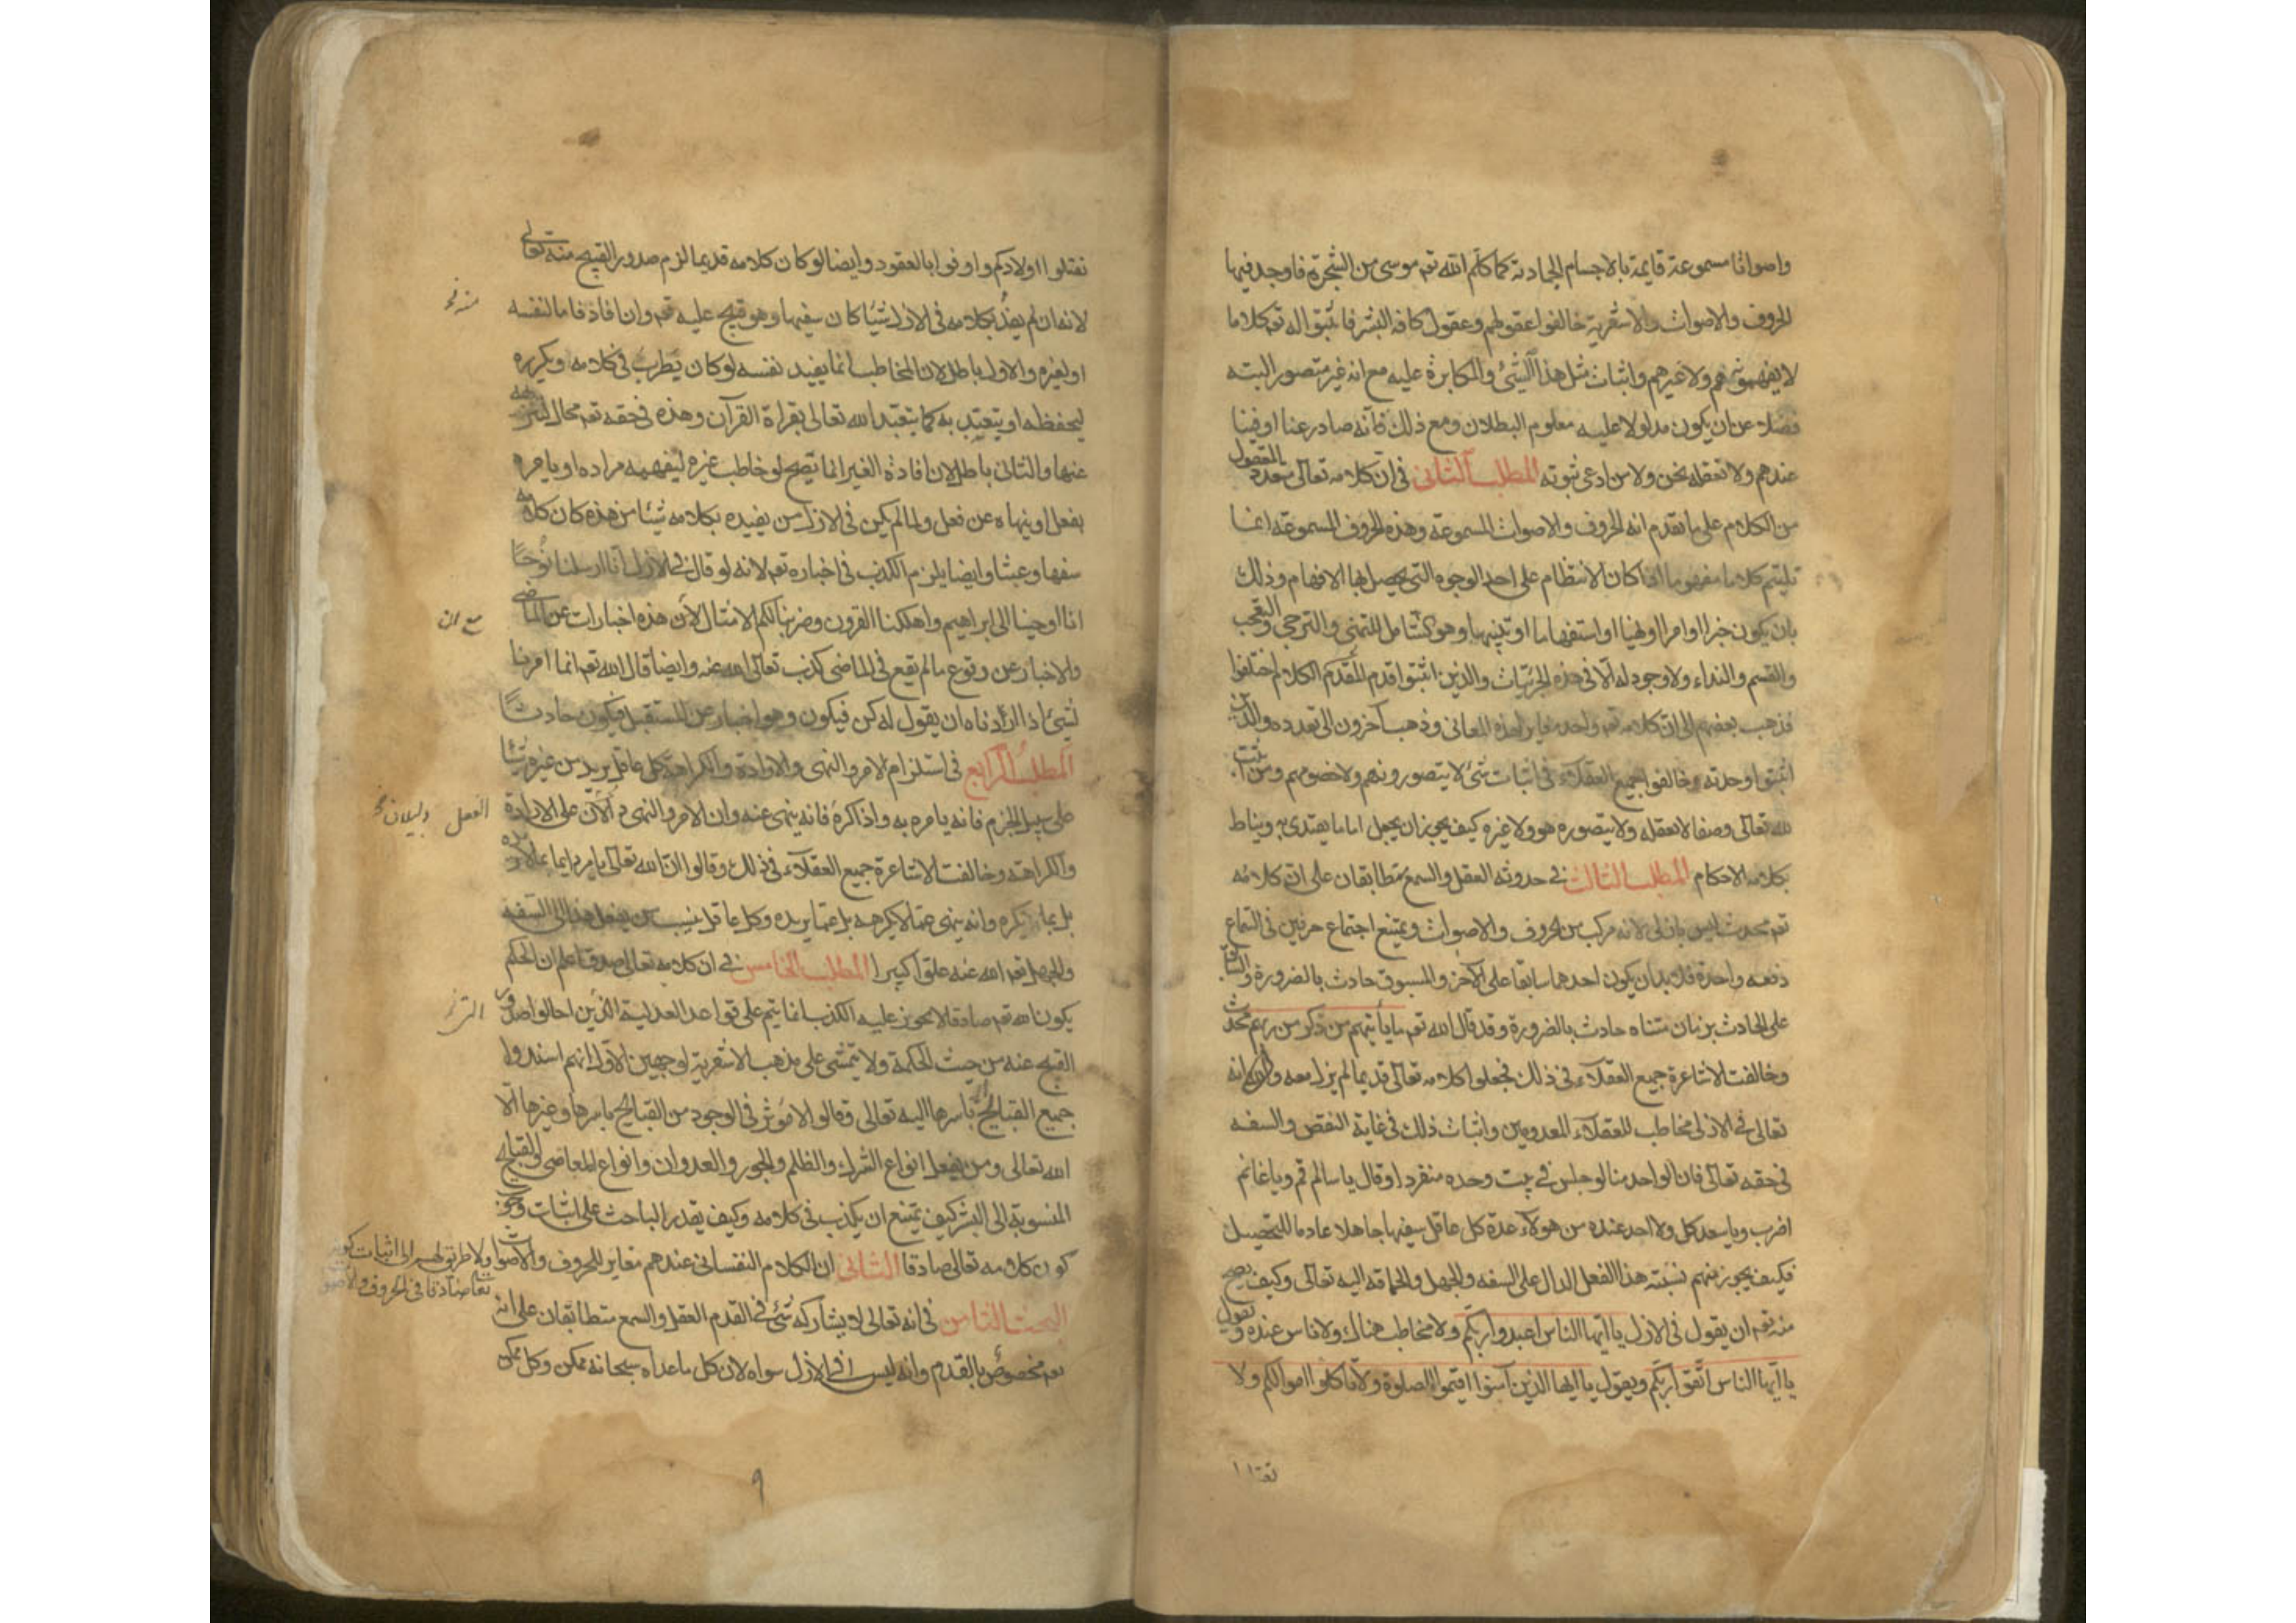 واصواتا مسموعة قايمة بالاجسام الجمادية كما كلم الله تعـ موسى من الشجرة فاوجد فيها
الحروف والاصوات والاشعرية خالفوا عقولهم وعقول كافة البشر فاثبتوا له تعـ كلاما
لا يفهمونه هم ولا غيرهم واثبات مثل هذا الشئ والمكابرة عليه مع انه غير متصور البته
فضلا عن ان يكون مدلولا عليه معلوم البطلان ومع ذلك فانه صادر عنا او فينا
عندهم ولا نعقله نحن ولا من ادعى ثبوته المطلب الثانى فى ان كلامه تعالى متعدد المعقول
من الكلام على ما تقدم انه الحروف والاصوات المسموعة وهذه الحروف المسموعة انما
تلتيم كلاما مفهوما اذا كان الانتظام على احد الوجوه التى يحصل بها الافهام وذلك
بان يكون خبرا او امرا او نهيا او استفهاما او تنبيها وهو الشامل للتمنى والترجى والتعجب
والقسم والنداء ولا وجود له الا فى هذه الجزئيات والذين اثبتوا قدم الكلام اختلفوا
فذهب بعضهم الى ان كلامه تعـ واحد مغاير لهذه المعانى وذهب آخرون الى تعدده والذين
اثبتوا وحدته خالفوا جميع العقلاء فى اثبات شئ لا يتصورونه هم ولا خصومهم ومن اثبت
لله تعالى وصفا لا يعقله ولا يتصوره هو ولا غيره كيف يجوز ان يجعل اماما يقتدى به ويناط
بكلامه الاحكام المطلب الثالث فى حدوثه العقل والسمع متطابقان على ان كلامه
تعـ محدث ليس بازلى لانه مركب من الحروف والاصوات ويمتنع اجتماع حرفين فى السماع
دفعه واحدة فلا بد ان يكون احدهما سابقا على الآخر والمسبوق حادث بالضرورة والسابق
على الحادث بزمان متناه حادث بالضرورة وقد قال الله تعـ ما يأتيهم من ذكر من ربهم محدث
وخالفت الاشاعرة جميع العقلاء فى ذلك فجعلوا كلامه تعالى قديما لم يزل معه وانه
تعالى فى الازل مخاطب للعقلاء المعدومين واثبات ذلك فى غاية النقص والسفه
فى حقه تعالى فان الواحد منا لو جلس فى بيت وحده منفردا وقال يا سالم قم ويا غانم
اضرب ويا سعد كل ولا احد عنده من هولاء عدة كل عاقل سفيها جاهلا عادما للتحصيل
فكيف يجوز منهم نسبته هذا الفعل الدال على السفه والجهل والحماقه اليه تعالى وكيف يصح
منه تعـ ان يقول فى الازل يا ايها الناس اعبدوا ربكم ولا مخاطب هناك ولا ناس عنده ويقول
يا ايها الناس اتقوا ربكم ويقول يا ايها الذين آمنوا اقيموا الصلوة ولا تاكلوا اموالكم ولا
تقتلوا
تقتلوا اولادكم واوفوا بالعقود وايضا لو كان كلامه قديما لزم صدور القبيح منه تعالى
لانه ان لم يفد بكلامه فى الازل شيئا كان سفيها وهو قبيح عليه تعـ وان افاد فاما لنفسه
او لغيره والاول باطل لان المخاطب انما يفيد نفسه لو كان يطرب فى كلامه ويكرره
ليحفظه او يتعبد به كما يتعبد الله تعالى بقراة القرآن وهذه فى حقه تعـ محال لتنزهه
عنها والثانى باطل لان افادة الغير انما تصح لو خاطب غيره ليفهمه مراده او يامره
بفعل او ينهاه عن فعل ولما لم يكن فى الازل من يفيده بكلامه شيئا من هذه كان كلامه
سفها وعبثا وايضا يلزم الكذب فى اخباره تعـ لانه لو قال فى الازل انا ارسلنا نوحا
انا اوحينا الى ابراهيم واهلكنا القرون وضربنا لكم الامثال لان هذه اخبارات عن الماضى
والاخبار عن وقوع ما لم يقع فى الماضى كذب تعالى الله عنه وايضا قال الله تعـ انما امرنا
لشئ اذا اردناه ان يقول له كن فيكون وهو اخبار عن المستقبل فيكون حادثا
المطلب الرابع فى استلزام الامر والنهى والارادة والكراهة كل عاقل يريد من غيره شيئا
على سبيل الجزم فانه يامره به واذا كره فانه ينهى عنه وان الامر والنهى دالان على الارادة
والكراهة وخالفت الاشاعرة جميع العقلاء فى ذلك وقالوا ان الله تعالى يامر دايما بما لا يريده
بل بما يكره وانه ينهى عما لا يكرهه بل عما يريده وكل عاقل ينسب من يفعل هذا الى السفه
والجهل تعـ الله عنه علوا كبيرا المطلب الخامس فى ان كلامه تعالى صدق اعلم ان الحكم
يكون الله تعـ صادقا لا يجوز عليه الكذب انما يتم على قواعد العدلية الذين احالوا صدور
القبيح عنه من حيث الحكمة ولا يتمشى على مذهب الاشعرية لوجهين الاول انهم اسندوا
جميع القبايح باسرها اليه تعالى وقالوا لا مؤثر فى الوجود من القبايح باسرها وغيرها الا
الله تعالى ومن يفعل انواع الشرك والظلم والجور والعدوان وانواع المعاصى والقبايح
المنسوبة الى البشر كيف يمتنع ان يكذب فى كلامه وكيف يقدر الباحث على اثبات وجوب
كون كلامه تعالى صادقا الثانى ان الكلام النفسانى عندهم مغاير للحروف والاصوات
ولا طريق لهم الى اثبات كونه
تعا صادقا فى الحروف والاصوات
البحث الثامن فى انه تعالى لا يشاركه شئ فى القدم العقل والسمع متطابقان على انه
تعـ مخصوص بالقدم وانه ليس فى الازل سواه لان كل ما عداه سبحانه ممكن وكل ممكن
٩